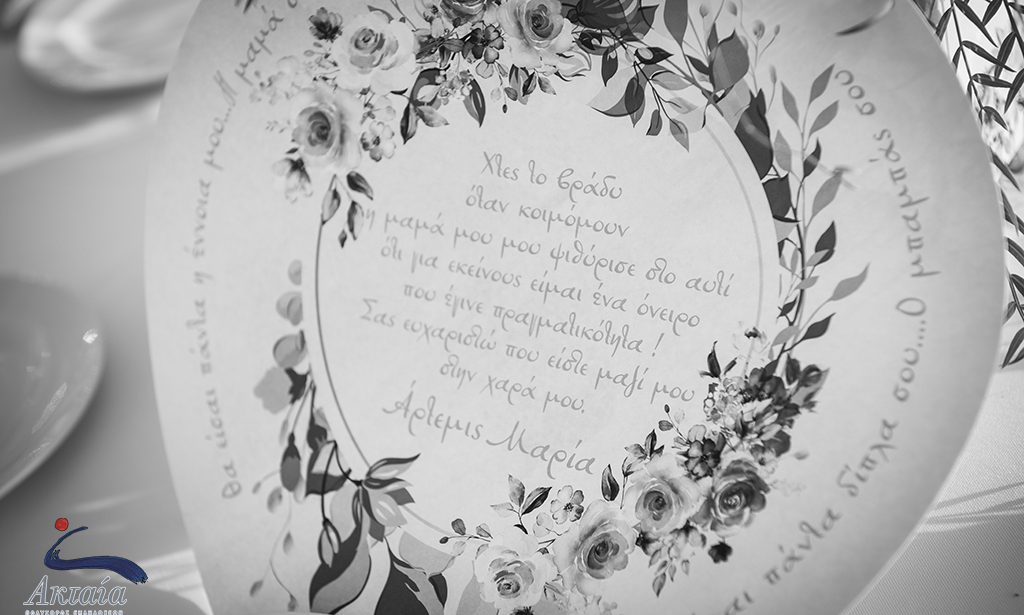 Χτες το βράδυ
όταν κοιμόμουν
η μαμά μου μου ψιθύρισε στο αυτί
ότι για εκείνους είμαι ένα όνειρο
που έγινε πραγματικότητα !
Σας ευχαριστώ που είστε μαζί μου
στην χαρά μου.
Άρτεμις Μαρία
θα είσαι πάντα η έννοια μου...Η μαμά σ
αι πάντα δίπλα σου...Ο μπαμπάς σου
Ακταία